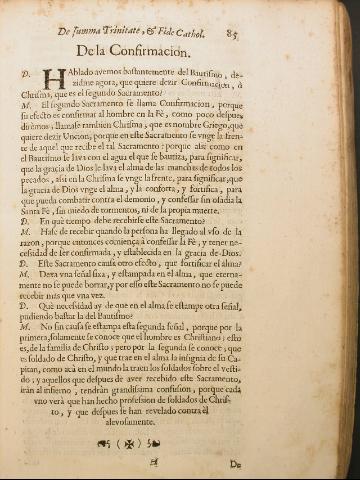 De summa Trinitate, & Fide Cathol. 85
De la Confirmacion.
D. HAblado avemos bastantemente del Bautismo, de-
zidme agora, que quiere dezir Confirmacion, ò
Chrisma, que es el segundo Sacramento?
M. El segundo Sacramento se llama Confirmacion, porque
su efecto es confirmar al hombre en la Fè, como poco despues
dirèmos, llamase tambien Chrisma, que es nombre Griego, què
quiere dezir Uncion, porque en este Sacramento se vnge la fren-
te de aquel que recibe el tal Sacramento: porque assi como en
el Bautismo se lava con el agua el que se bautiza, para significar,
que la gracia de Dios le lava el alma de las manchas de todos los
pecados, assi en la Chrisma se vnge la frente, para significar, que
la gracia de Dios vnge el alma, y la conforta, y fortifica, para
que pueda combatir contra el demonio, y confessar sin osadia la
Santa Fè, sin miedo de tormentos, ni de la propia muerte.
D. En què tiempo debe recibirse este Sacramento?
M. Hase de recibir quando la persona ha llegado al vso de la
razon, porque entonces comiença à confessar la Fè, y tener ne-
cessidad de ser confirmada, y establecida en la gracia de Dios.
D. Este Sacramento causa otro efecto, que fortificar el alma?
M. Dexa vna señal fixa, y estampada en el alma, que eterna-
mente no se puede borrar, y por esso este Sacramento no se puede
recibir mas que vna vez.
D. Què necesidad ay de que en el alma se estampe otra señal,
pudiendo bastar la del Bautismo?
M. No sin causa se estampa esta segunda señal, porque por la
primera, solamente se conoce que el hombre es Christiano; esto
es, de la familia de Christo; pero por la segunda se conoce, que
es soldado de Christo, y que trae en el alma la insignia de su Ca-
pitan, como acà en el mundo la traen los soldados sobre el vesti-
do; y aquellos que despues de aver recebido este Sacramento,
iràn al infierno, tendràn grandissima confusion, porque cada
vno verà que han hecho profesion de soldados de Chris-
to, y que despues se han revelado contra èl
alevosamente.
H De